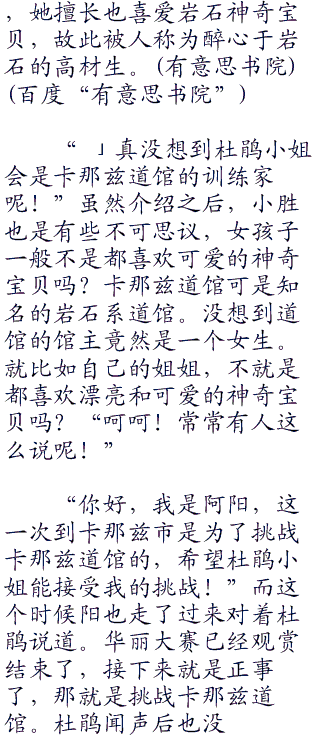 ，她擅长也喜爱岩石神奇宝
贝，故此被人称为醉心于岩
石的高材生。(有意思书院)
(百度“有意思书院”)
“ 」真没想到杜鹃小姐
会是卡那兹道馆的训练家
呢！”虽然介绍之后，小胜
也是有些不可思议，女孩子
一般不是都喜欢可爱的神奇
宝贝吗？卡那兹道馆可是知
名的岩石系道馆。没想到道
馆的馆主竟然是一个女生。
就比如自己的姐姐，不就是
都喜欢漂亮和可爱的神奇宝
贝吗？“呵呵！常常有人这
么说呢！”
“你好，我是阿阳，这
一次到卡那兹市是为了挑战
卡那兹道馆的，希望杜鹃小
姐能接受我的挑战！”而这
个时候阳也走了过来对着杜
鹃说道。华丽大赛已经观赏
结束了，接下来就是正事
了，那就是挑战卡那兹道
馆。杜鹃闻声后也没